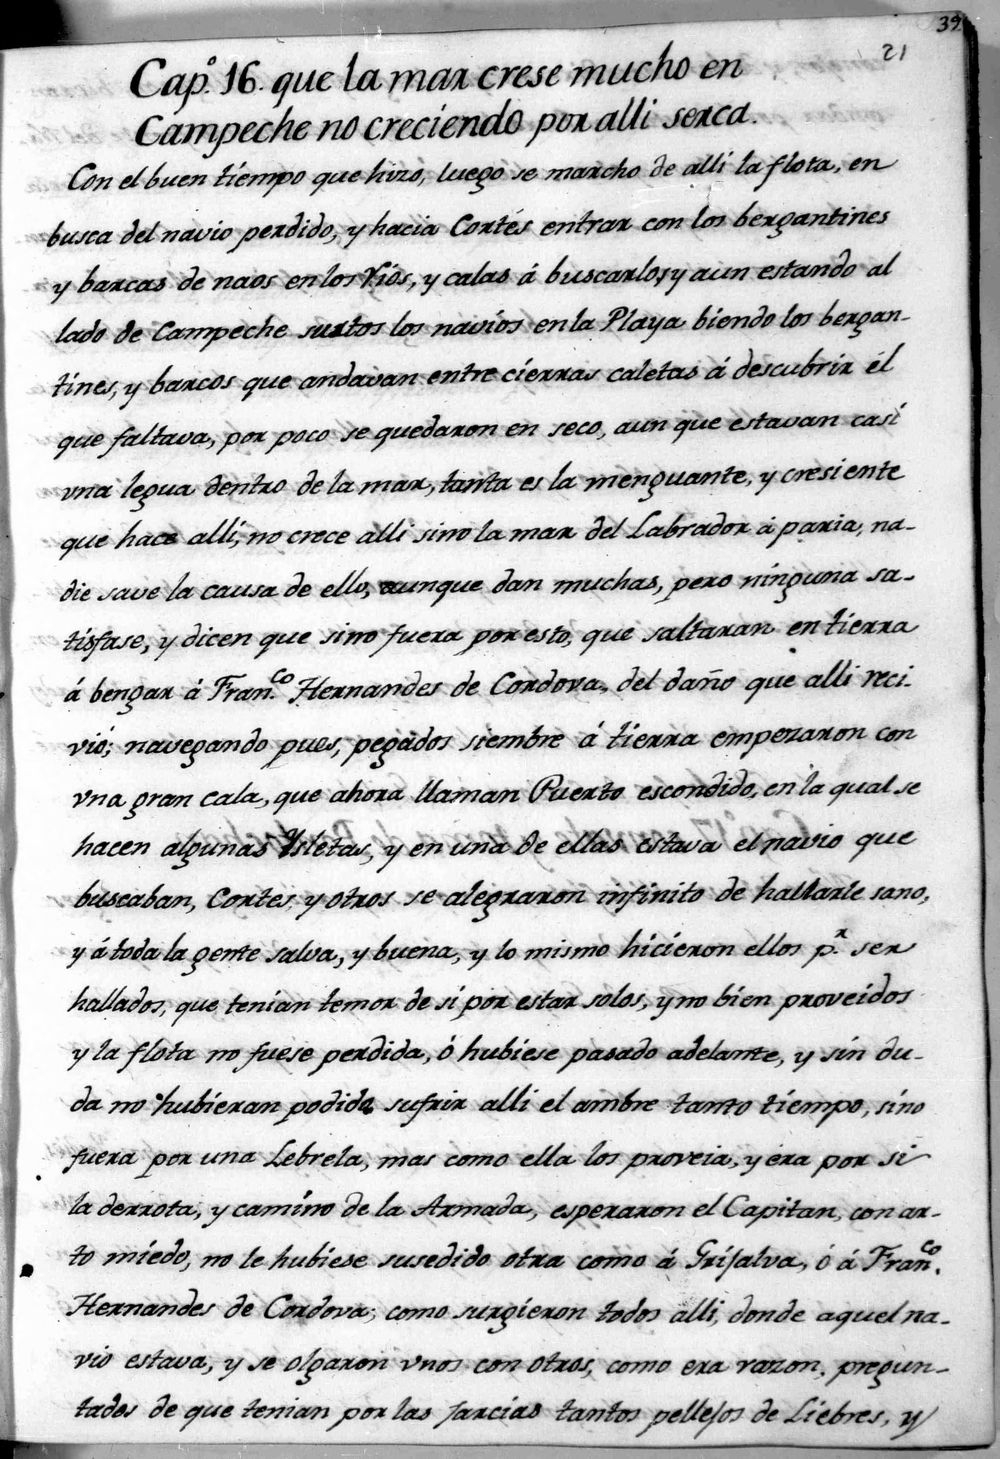 39
21
Cap.º 16. que la mar crese mucho en
Campeche no creciendo por alli serca.
Con el buen tiempo que hizo, luego se marcho de alli la flota, en
busca del navio perdido, y hacia Cortés entrar con los bergantines
y barcas de naos en los Rios, y calas á buscarlos, y aun estando al
lado de Campeche surtos los navios en la Playa biendo los bergan-
tines, y barcos que andavan entre cierras caletas á descubrir el
que faltava, por poco se quedaron en seco, aun que estavan casi
vna legua dentro de la mar, tanta es la menguante, y cresiente
que hace alli, no crece alli sino la mar del Labrador á paria, na-
die save la causa de ello, aunque dan muchas, pero ninguna sa-
tisfase, y dicen que sino fuera por esto, que saltaran en tierra
á bengar á Fran.co Hernandes de Cordova, del daño que alli reci-
vió; navegando pues, pegados siembre á tierra empezaron con
vna gran cala, que ahora llaman Puerto escondido, en la qual se
hacen algunas Ysletas, y en una de ellas estava el navio que
buscaban, Cortes, y otros se alegraron infinito de hallarle sano,
y á toda la gente salva, y buena, y lo mismo hicieron ellos p.r ser
hallados, que tenian temor de si por estar solos, y no bien proveidos
y la flota no fuese perdida, ó hubiese pasado adelante, y sin du-
da no hubieran podido sufrir alli el ambre tanto tiempo, sino
fuera por una Lebrela, mas como ella los proveia, y era por si
la derrota, y camino de la Armada, esperaron el Capitan, con ar-
to miedo, no le hubiese susedido otra como á Grijalva, ó á Fran.co
Hernandes de Cordova; como surgieron todos alli, donde aquel na-
vio estava, y se olgaron vnos con otros, como era razon, pregun-
tados de que tenian por las jarcias tantos pellejos de Liebres, y